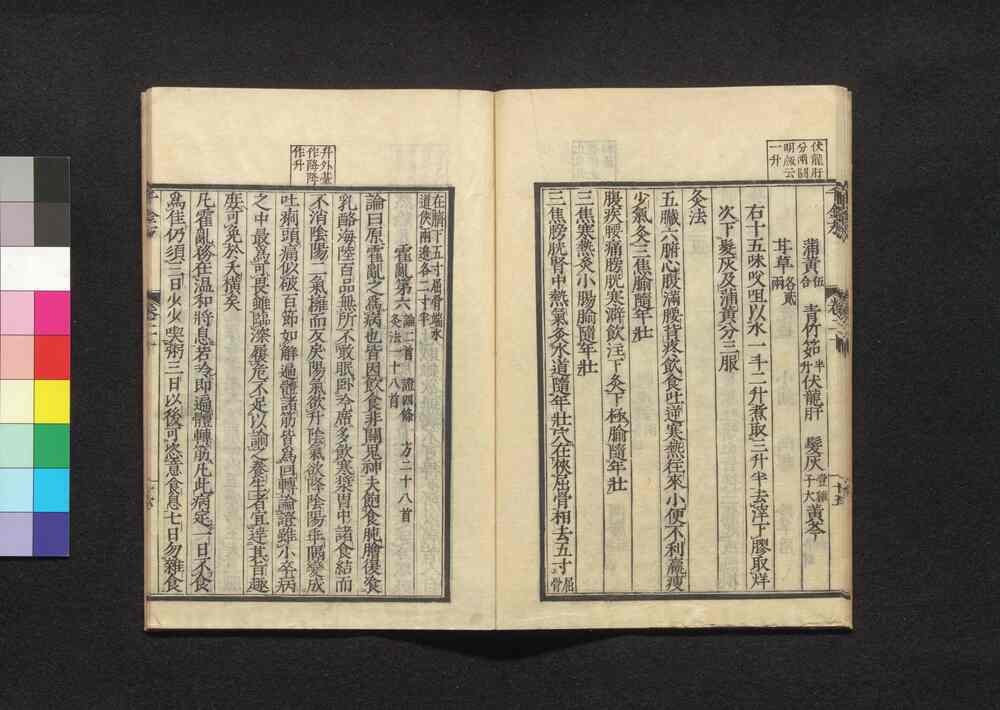 伏龍肝
分兩闕
明版云
一升
蒲黃伍合 青竹筎半升 伏龍肝 髮灰 黃芩
甘草各貳兩
右十五味㕮咀以水一斗二升煮取三升半去滓下膠取烊
次下髮灰及蒲黃分三服
灸法
五臟六腑心腹滿腰背疼飲食吐逆寒熱往來小便不利羸瘦
少氣灸三焦腧隨年壯
腹疾腰痛膀胱寒澼飲注下灸下極腧隨年壯
三焦寒熱灸小腸腧隨年壯
三焦膀胱腎中熱氣灸水道隨年壯穴在俠屈骨相去五寸屈骨
在臍下五寸屈骨端水
道俠兩邊各二寸半
霍亂第六 論二首 證四條 方二十八首
灸法一十八首
論曰原霍亂之為病也皆因飲食非關鬼神夫飽食肫膾復飡
乳酪海陸百品無所不噉眠臥冷席多飲寒漿胃中諸食結而
不消陰陽二氣擁而反戾陽氣欲升陰氣欲降陰陽乖隔變成
吐痢頭痛似破百節如解遍體諸筋皆為回轉論證雖小卒病
之中最為可畏雖臨深履危不足以諭之養生者宜達其旨趣
庶可免於夭橫矣
凡霍亂務在溫和將息若冷即遍體轉筋凡此病定一日不食
為佳仍須三日少少喫粥三日以後可恣意食息七日勿雜食
升外基
作降降
作升